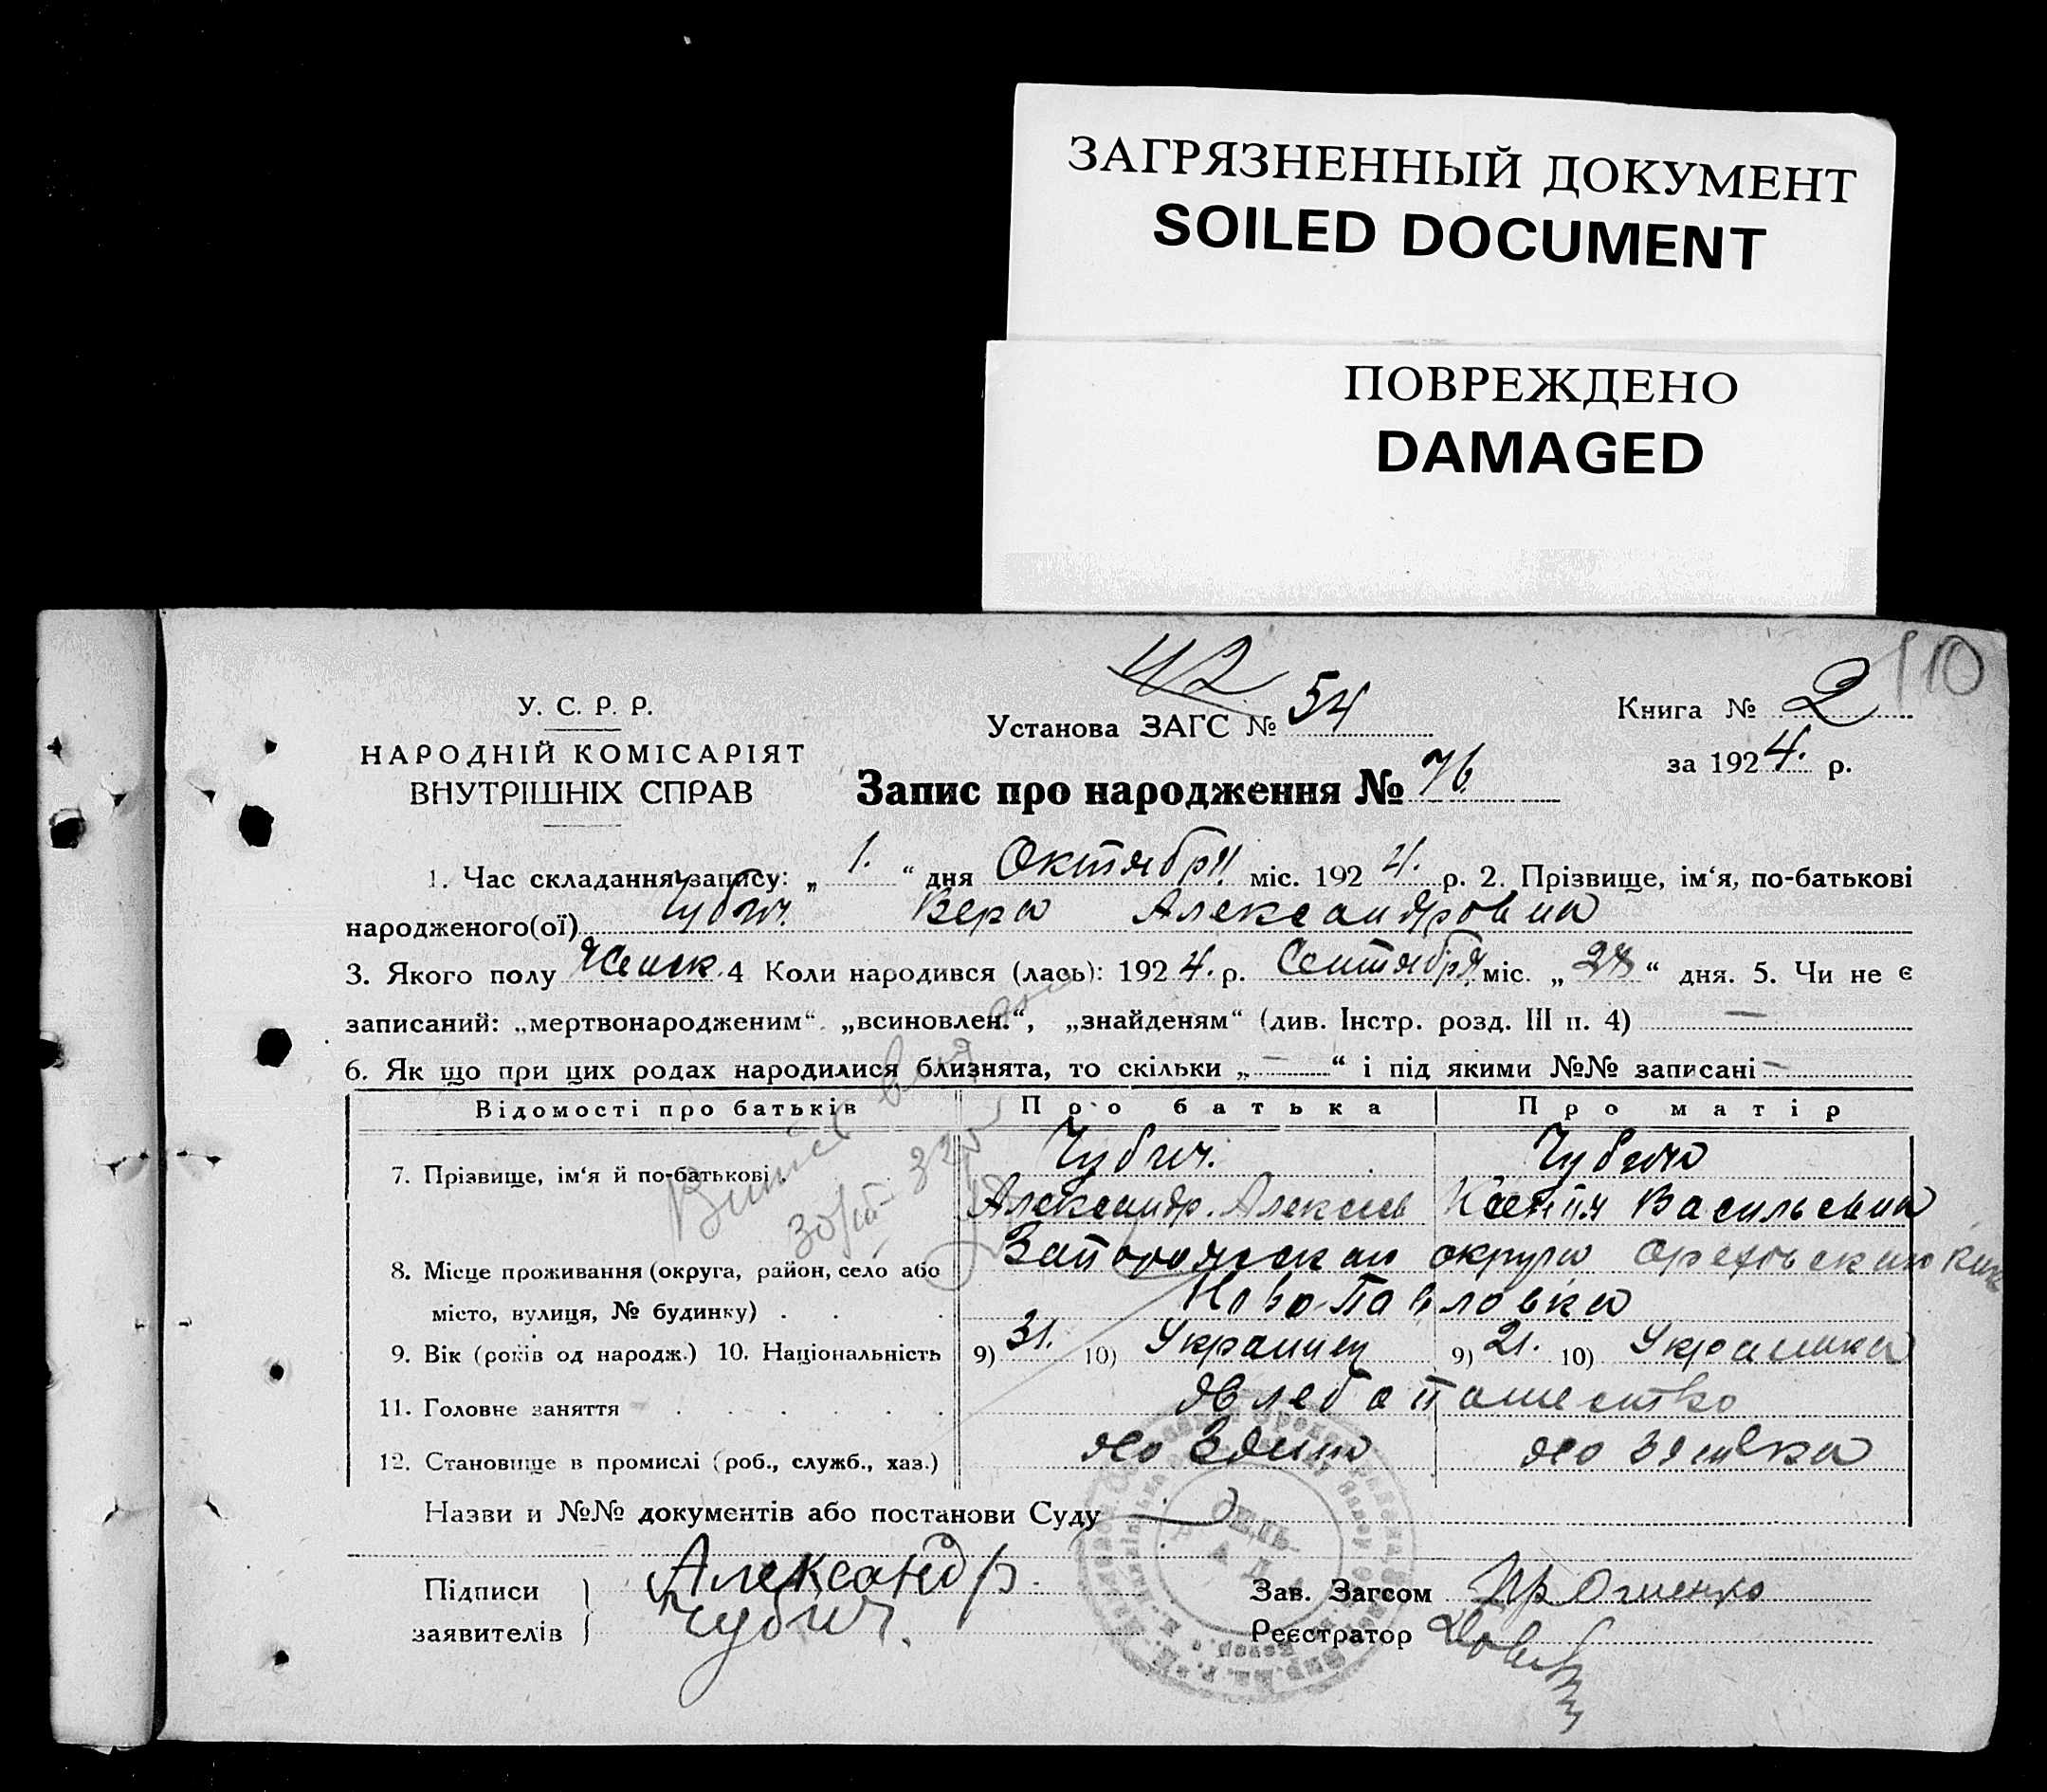 ЗАГРЯЗНЕННЫЙ ДОКУМЕНТ
SOILED DOCUMENT
ПОВРЕЖДЕНО
DAMAGED
110
У. С. Р. Р.
НАРОДНІЙ КОМІСАРІЯТ
ВНУТРІШНІХ СПРАВ
42
Установа ЗАГС № 54
Книга № 2
за 1924. р.
Запис про народження № 76
1. Час складання запису: „ 1. “ дня Октября міс. 1924. р. 2. Прізвище, ім‘я, по-батькові
народженого(ої) Чубич. Вера Александровна
3. Якого полу Женск. 4 Коли народився (лась): 1924. р. Сентября міс. „ “ дня. 5. Чи не є
записаний: „мертвонародженим“ „всиновлен.“, „знайденям“ (див. Інстр. розд. III п. 4) —
6. Як що при цих родах народилися близнята, то скільки „ — “ і під якими №№ записані —
Відомості про батьків Про батька Про матір
7. Прізвище, ім‘я й по-батькові . Чубич. Чубич
Александр. Алексеев Васильевна
8. Місце проживання (округа, район, село або Запорожская округа
місто, вулиця, № будинку) . . . Ново-Павловка
9. Вік (років од народж.) 10. Національність 9) 31. 10) Украинец 9) 21. 10) Украинка
11. Головне заняття . . . . . . хлебопашество
12. Становище в промислі (роб., служб., хаз.) хозяин хозяйка
Назви и №№ документів або постанови Суду —
Підписи Александр.
заявителів Чубич.
Зав. Загсом
Реєстратор